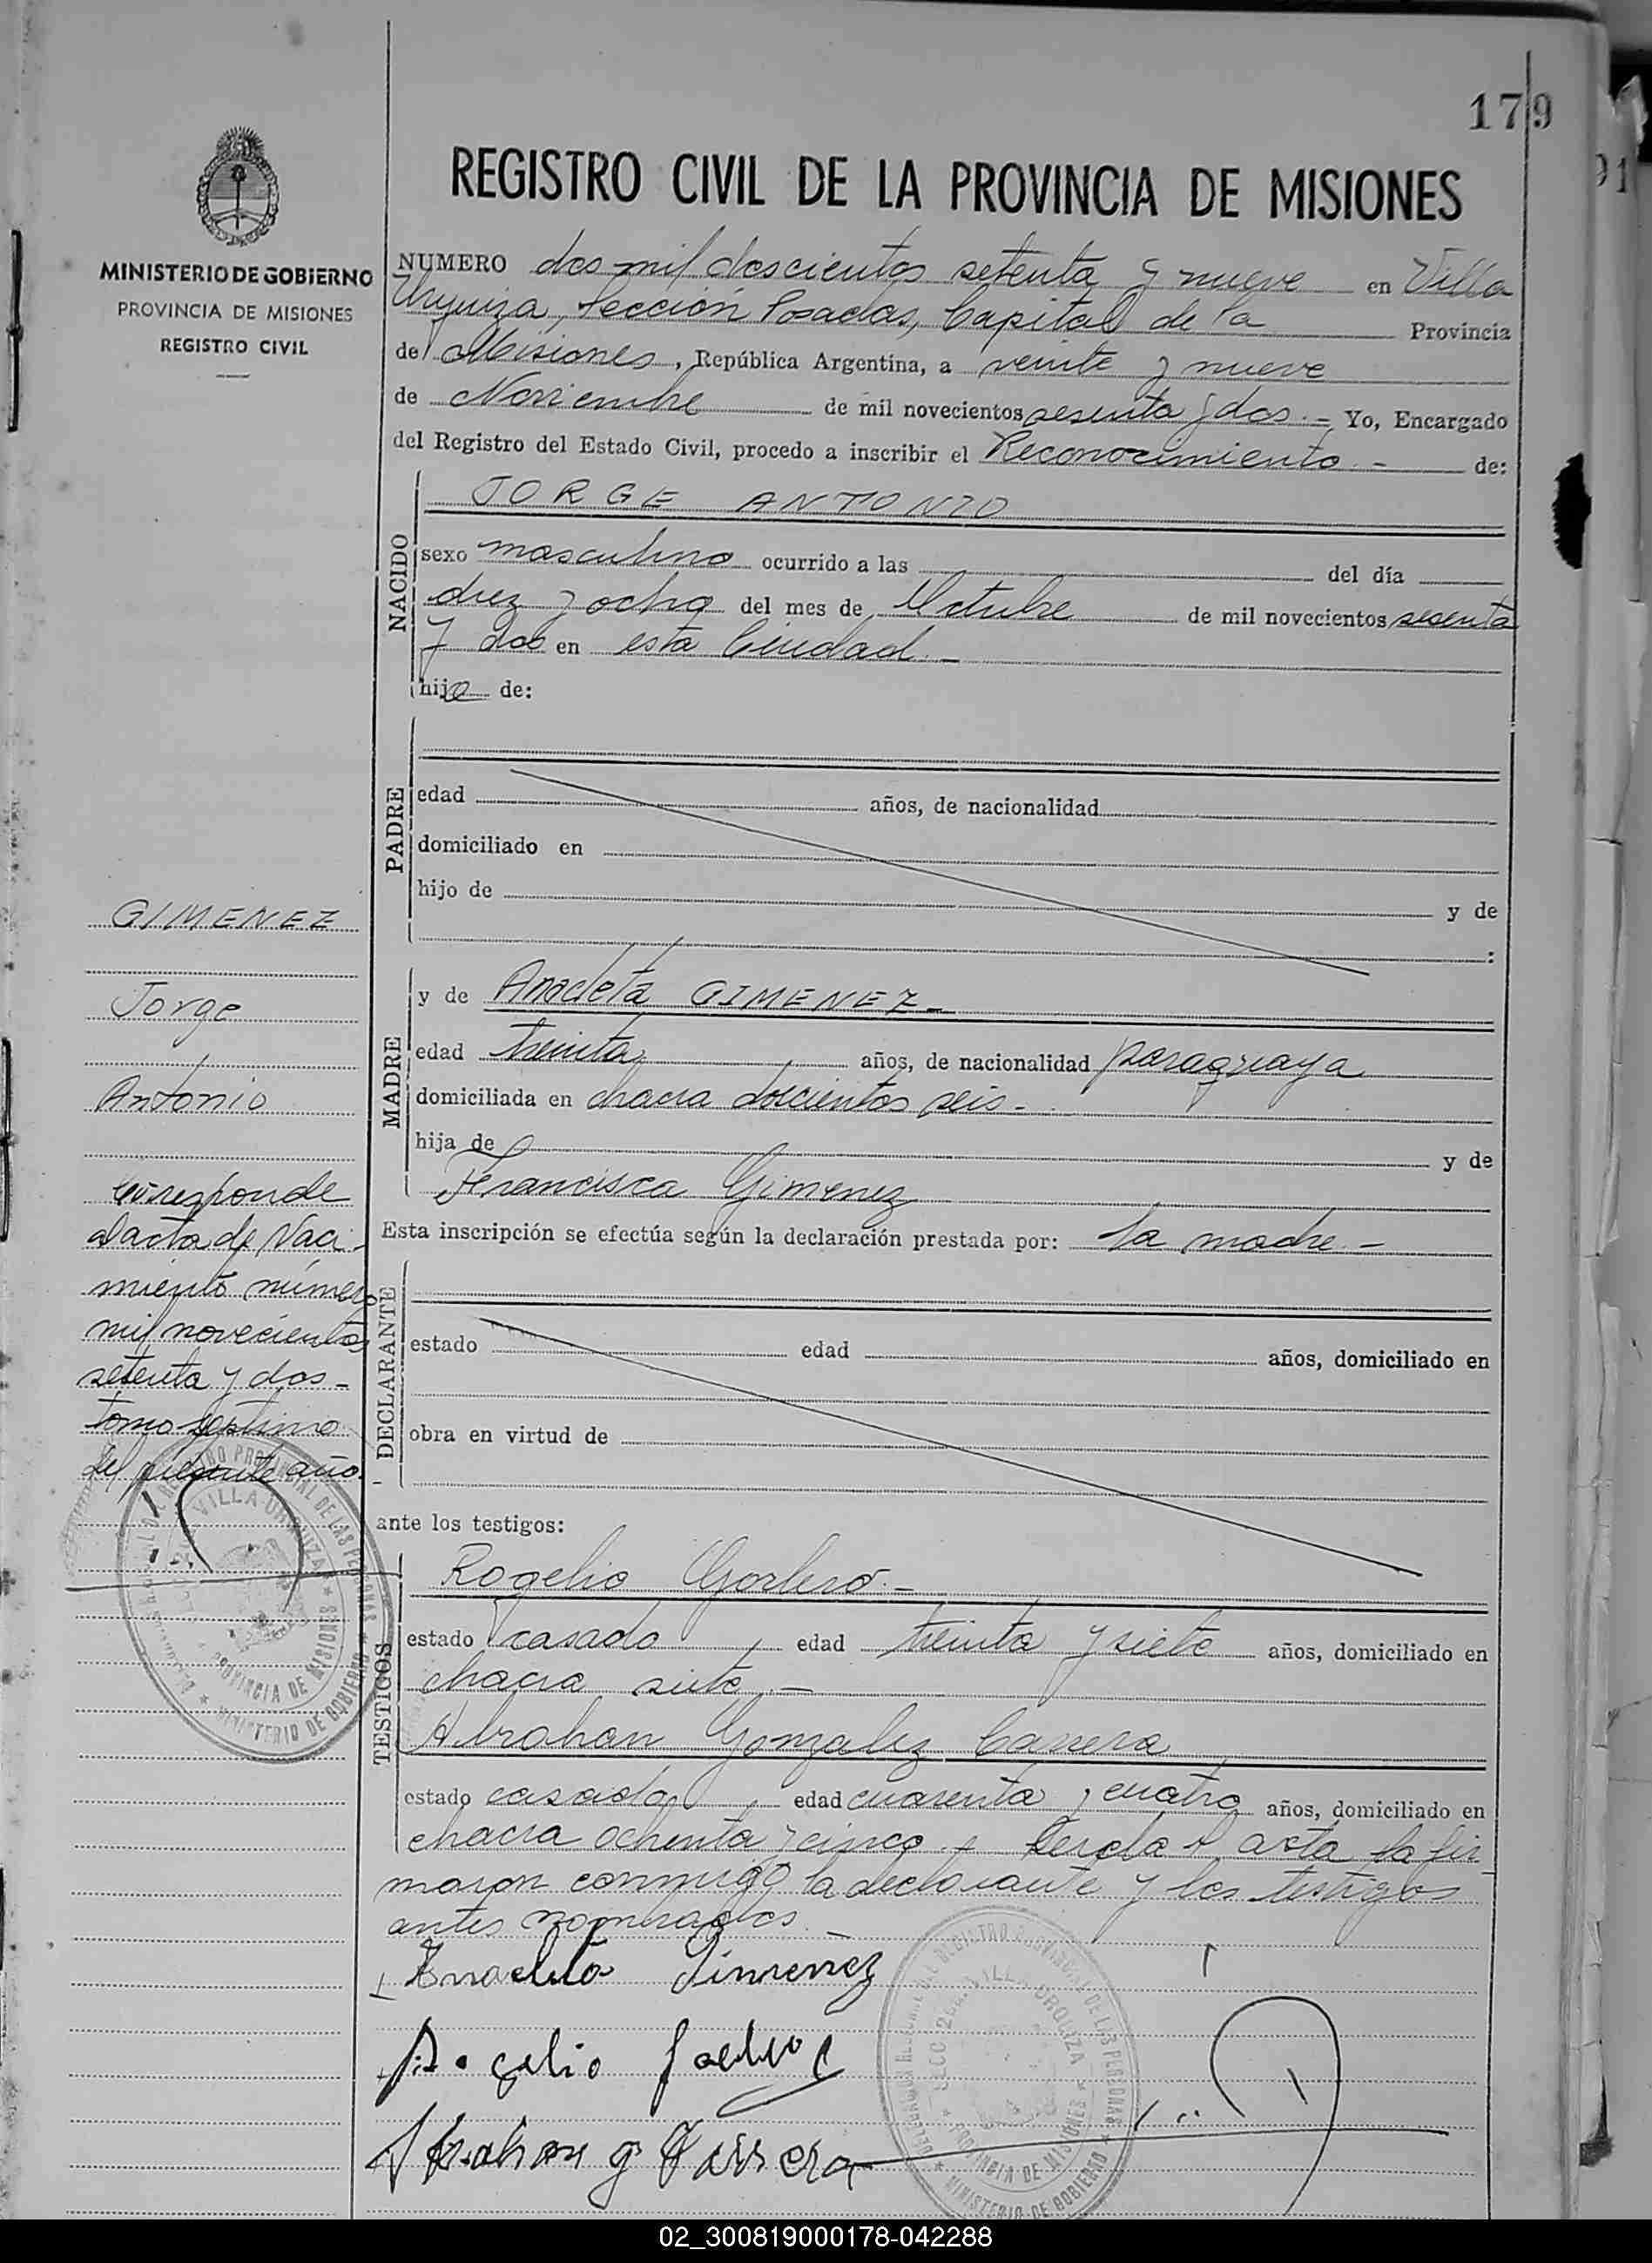 179
REGISTRO CIVIL DE LA PROVINCIA DE MISIONES
MINISTERIO DE GOBIERNO
PROVINCIA DE MISIONES
REGISTRO CIVIL
NUMERO dos mil doscientos setenta y nueve en Villa
Urquiza, Sección Posadas, Capital de la Provincia
de Misiones, República Argentina, a veinte y nueve
de Noviembre de mil novecientos sesenta y dos.- Yo, Encargado
del Registro del Estado Civil, procedo a inscribir el Reconocimiento.- de:
NACIDO
JORGE ANTONIO
sexo masculino ocurrido a las del día
diez y ocho del mes de Octubre de mil novecientos sesenta
y dos en esta Ciudad.-
hijo de:
PADRE
edad años, de nacionalidad
domiciliado en
hijo de y de
:
MADRE
y de Anacleta GIMENEZ.-
edad treinta años, de nacionalidad paraguaya
domiciliada en chacra doscientos seis.-
hija de y de
Francisca Gimenez
Esta inscripción se efectúa según la declaración prestada por: la madre.-
DECLARANTE
estado edad años, domiciliado en
obra en virtud de
ante los testigos:
TESTIGOS
Rogelio Gorlero.-
estado casado, edad treinta y siete años, domiciliado en
chacra siete.-
Abrahan Gonzalez Carrera
estado casado, edad cuarenta y cuatro años, domiciliado en
chacra ochenta y cinco.- Leida el acta la fir-
maron conmigo la declarante y los testigos
antes nombrados.-
Anacleta Gimenez
Rogelio Gorlero
Abrahan G Carrera
GIMENEZ
Jorge
Antonio
Corresponde
al acta de Naci-
miento número
mil novecientos
setenta y dos-
tomo septimo
del presente año.
VILLA URQUIZA
PROVINCIA DE MISIONES
MINISTERIO DE GOBIERNO
VILLA URQUIZA
PROVINCIA DE MISIONES
MINISTERIO DE GOBIERNO
02_300819000178-042288